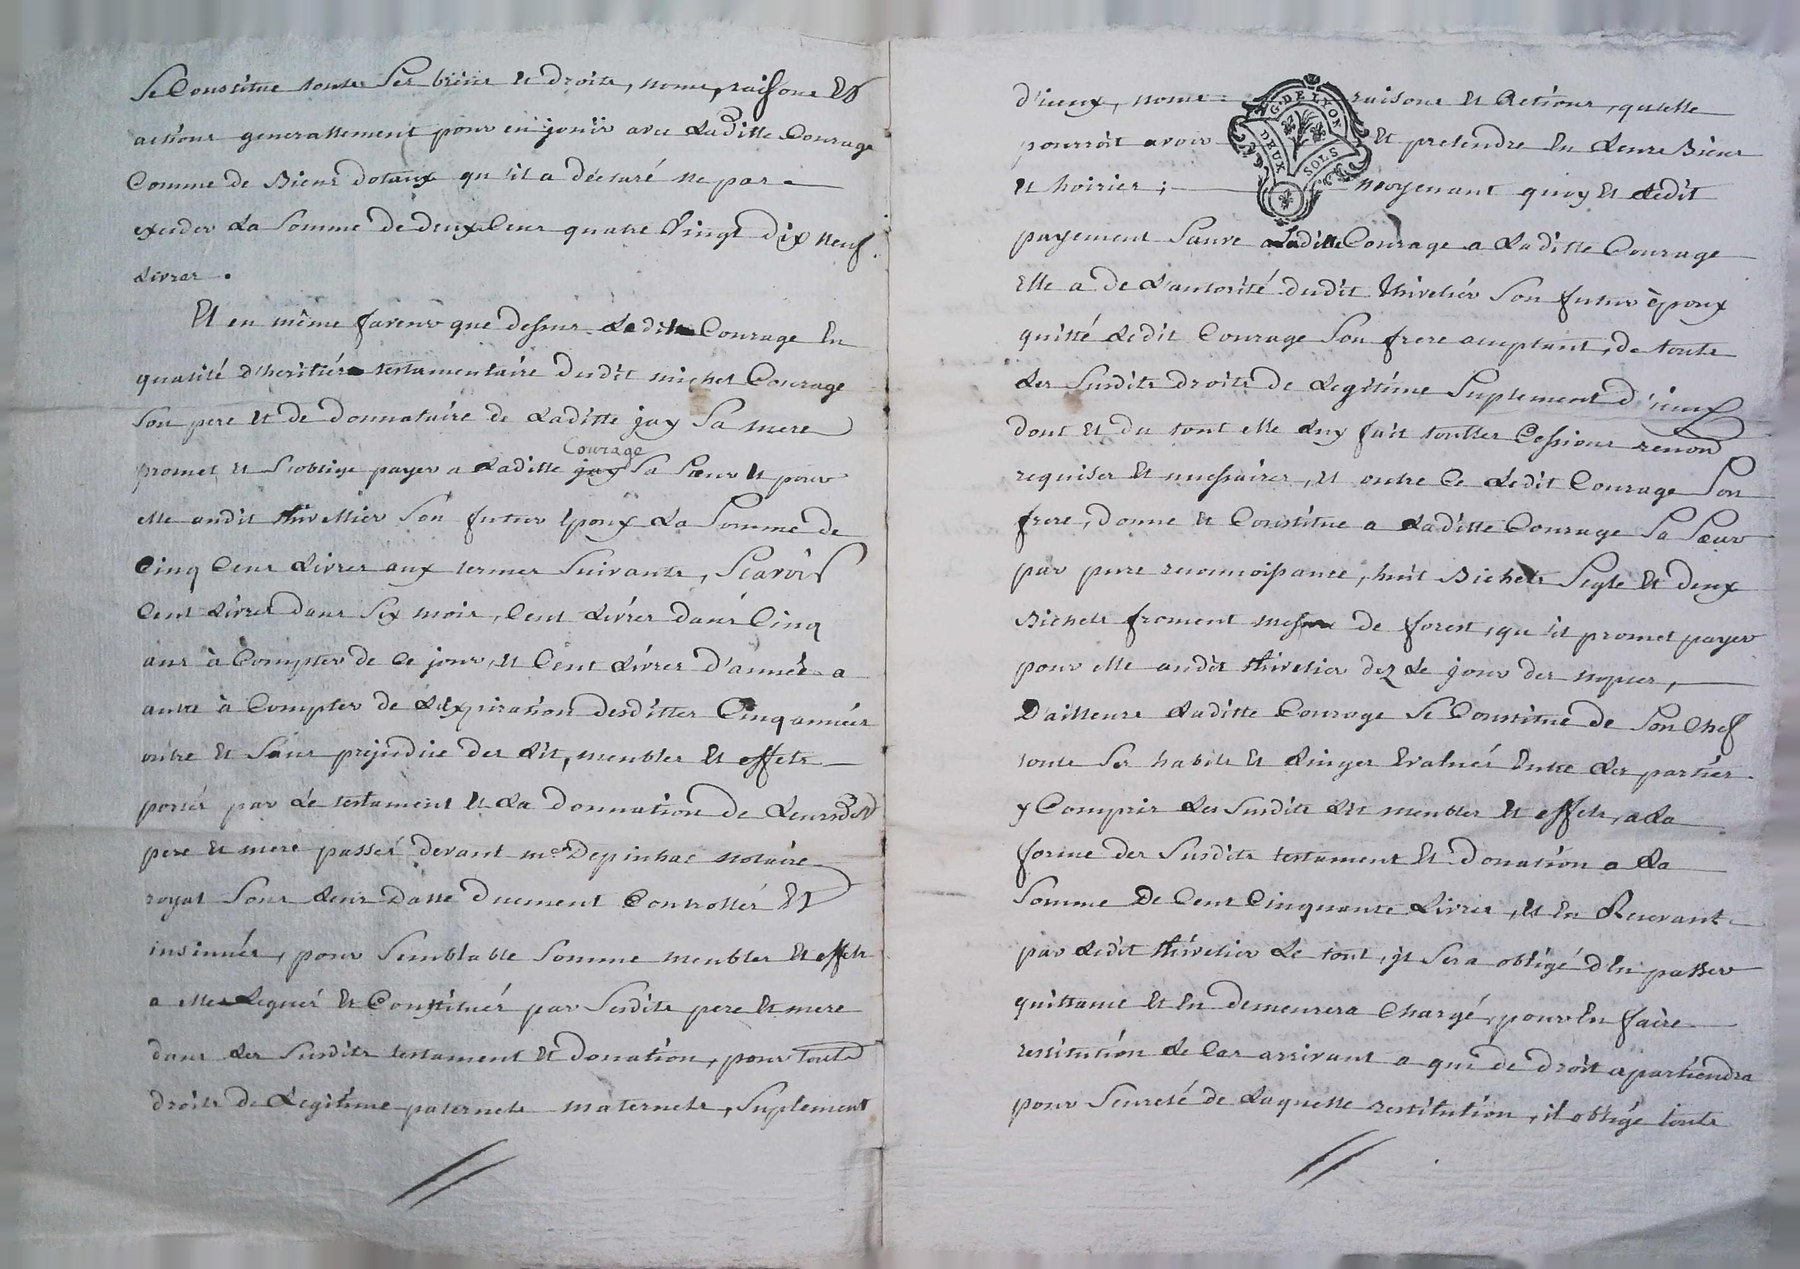 Se Constitue touts Ses biens et droits, noms, raisons Et
actions generallement pour en jouïr avec Laditte Courage
Comme de Biens dotaux qu'il a déclaré ne pas
exceder La Somme de deux Cens quatre Vingt dix neuf
Livres.
Et en même faveur que dessus Ledit Courage En
qualité d'heritiér testamentaire dudit michel Courage
Son pere et de donnataire de Laditte jay Sa mere
promet et S'oblige payer a Laditte jay Courage Sa Sœur et pour
elle audit thivellier Son futur Epoux La Somme de
Cinq Cens Livres aux termes Suivants, Scavoir
Cent Livres dans Six mois, Cent Livres dans Cinq
ans à Compter de Ce jour, et Cent Livres d'année a
autre à Compter de L'éxpiration desdittes Cinq années
outre et Sans prejudice des Lit, meubles et effets
portés par Le testament et La donnation de Leursdits
pere et mere passés devant me Depinhac notaire
royal Sous Leur Datte Duement Controllés Et
insinués, pour Semblable Somme meubles et effets
a elle Legués et Constitués par Sesdits pere et mere
dans Les Susdits testament et donation, pour touts
droits de Légitime paternels maternels, Suplement
d'iceux, noms raisons et actions, qu'elle
G. DE LYON
DEUX SOLS
pourroit avoir Et pretendre En Leurs Biens
et hoiries; moyenant quoy et Ledit
payement Sauve a Laditte Courage a Laditte Courage
Elle a de L'autorité dudit thivelier Son futur époux
quitté Ledit Courage Son frere aceptant, de touts
Les Susdits droits de Legitime Suplement d'iceux
dont et du tout elle Luy fait touttes Cessions
requises et necessaires, et outre Ce Ledit Courage Son
frere, donne et Constitue a Laditte Courage Sa Sœur
par pure reconnoissance, huit Bichets Segle et deux
Bichets froment mesure de forest, qu'il promet payer
pour elle audit thivelier dez Le jour des nopces,
D'ailleurs Laditte Courage Se Constitue de Son Chef
touts Ses habits et Linges Evalués Entre Les parties
y Compris Les Susdits Lit meubles et effets, a La
forme des Susdits testament et donation a La
Somme De Cent Cinquante Livres, et En Recevant
par Ledit thivelier Le tout, il Sera obligé d'En passer
quittance et En demeurera Chargé, pour En faire
restitution Le Cas arrivant a qui de droit apartiendra
pour Seureté de Laquelle restitution, il oblige touts